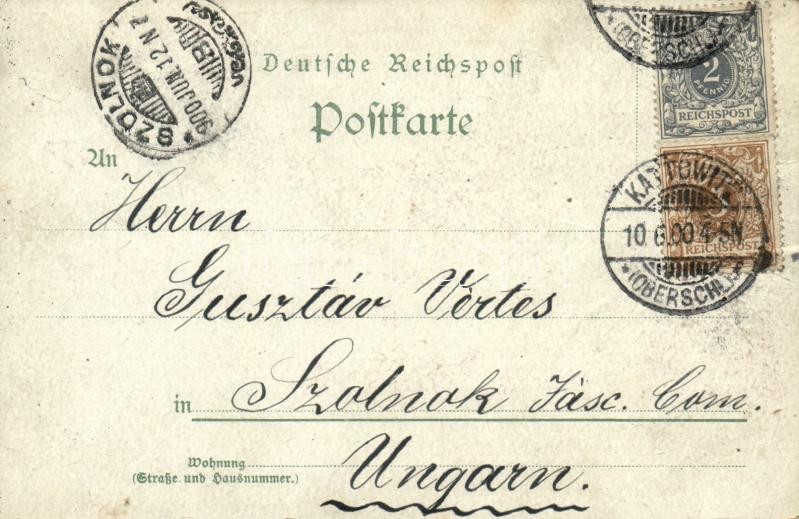 SZOLNOK
900 JUN. 12 N 7
Deutsche Reichspost
Postkarte
(OBERSCHL.)
2
PFENNIG
REICHSPOST
An
Herrn
KATTOWITZ
10.6.00 4-5N
(OBERSCHL.)
3
REICHSPOST
Gusztáv Vértes
in Szolnok Jász. Com.
Wohnung
(Straße und Hausnummer.)
Ungarn.